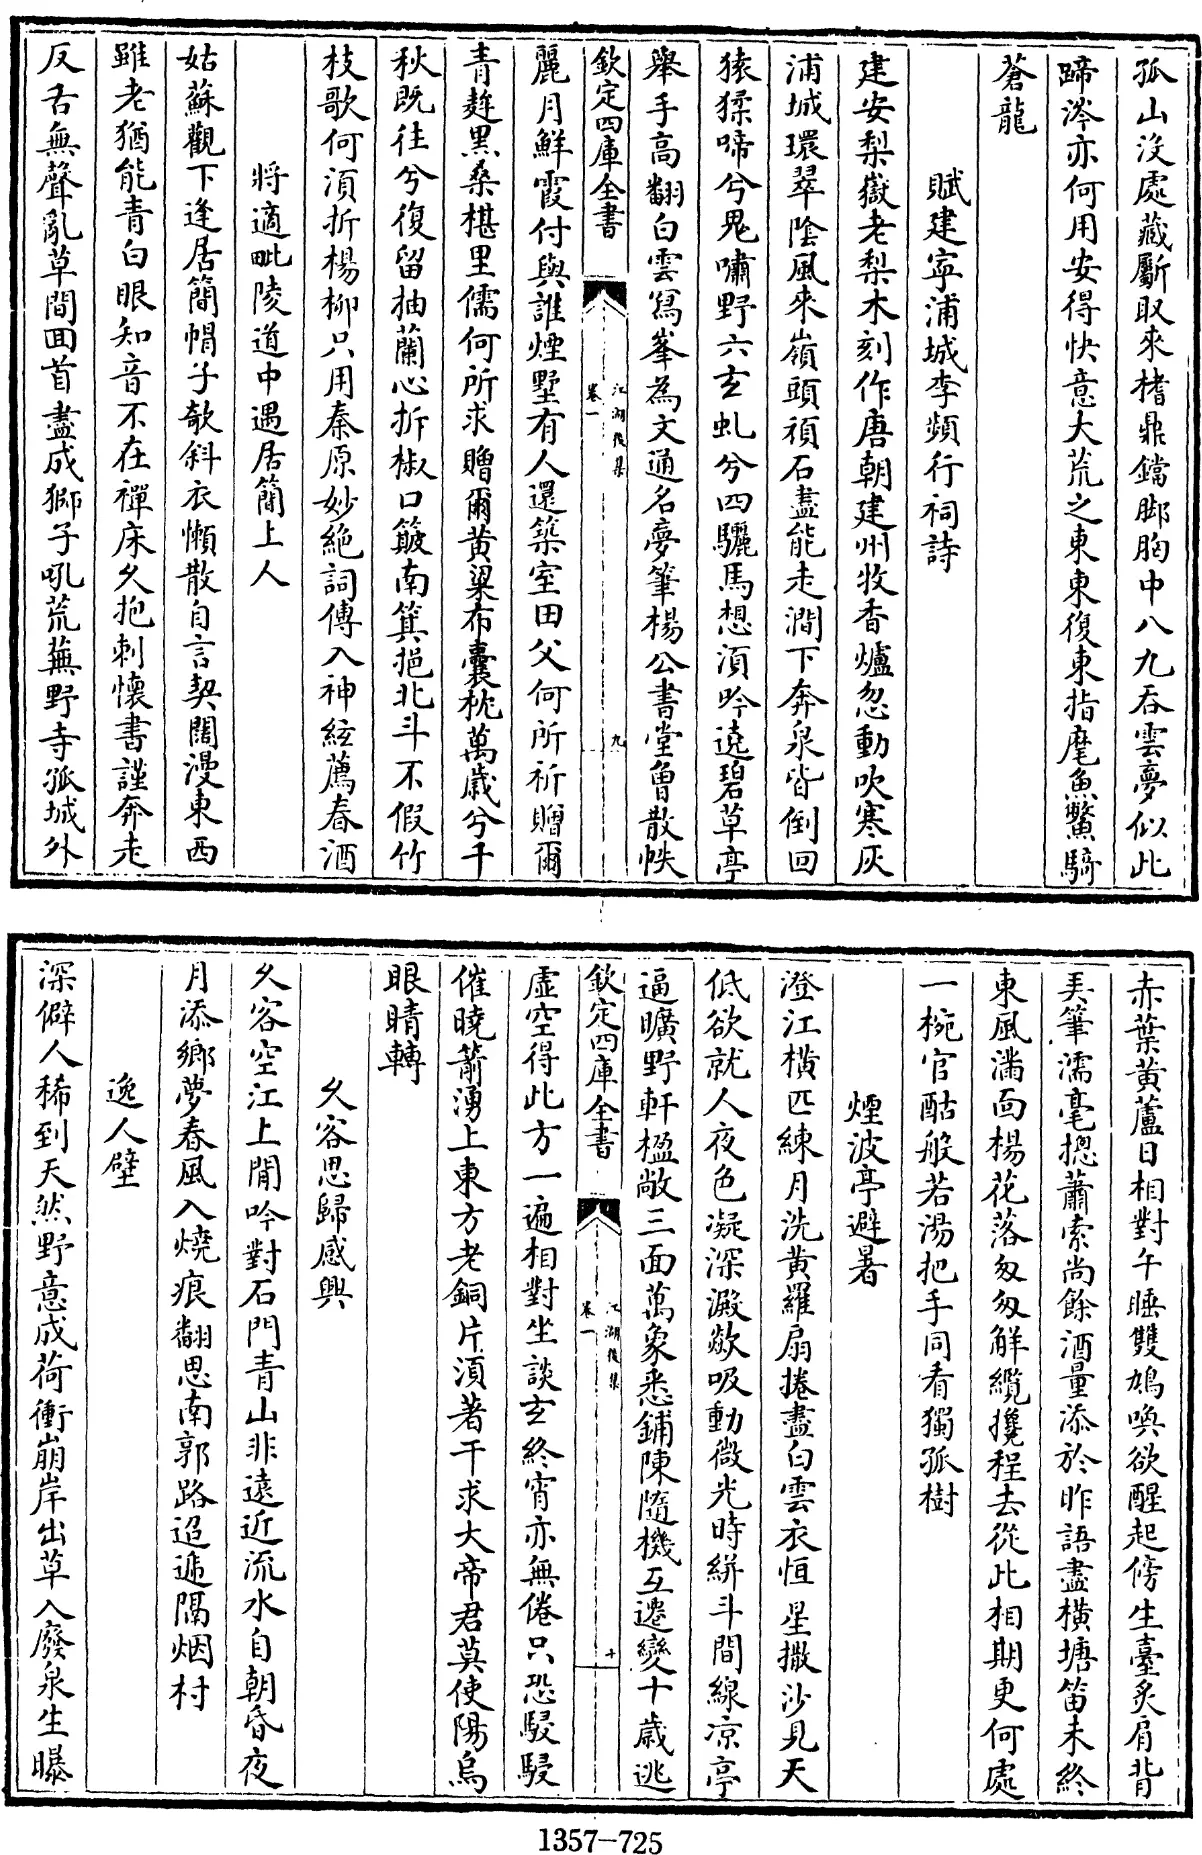 孤山沒處藏斸取來楮鼎鐺脚胸中八九吞雲夢似此
蹄涔亦何用安得快意大荒之東東復東指麾魚鱉騎
蒼龍
賦建寧浦城李頻行祠詩
建安梨嶽老梨木刻作唐朝建州牧香爐忽動吹寒灰
浦城環翠陰風來嶺頭頑石盡能走澗下奔泉皆倒回
猿猱啼兮鬼嘯野六玄虬兮四驪馬想須吟遶碧草亭
舉手高翻白雲寫峯為文通名夢筆楊公書堂曾散帙
欽定四庫全書
江湖後集
卷一
九
麗月鮮霞付與誰煙墅有人還築室田父何所祈贈爾
青麰黑桑椹里儒何所求贈爾黃粱布囊枕萬歲兮千
秋既往兮復留抽蘭心拆椒口簸南箕挹北斗不假竹
枝歌何須折楊柳只用秦原妙絕詞傳入神絃薦春酒
將適毗陵道中遇居簡上人
姑蘇觀下逢居簡帽子欹斜衣懶散自言契闊漫東西
雖老猶能青白眼知音不在禪床久抱刺懷書謹奔走
反舌無聲亂草間回首盡成獅子吼荒蕪野寺孤城外
赤葉黃蘆日相對午睡雙鳩喚欲醒起傍生臺炙肩背
弄筆濡毫摠蕭索尚餘酒量添於昨語盡橫塘笛未終
東風滿面楊花落匆匆解纜攙程去從此相期更何處
一椀官酤般若湯把手同看獨孤樹
煙波亭避暑
澄江橫匹練月洗黃羅扇捲盡白雲衣恒星撒沙見天
低欲就人夜色凝深澱歘吸動微光時絣斗間線凉亭
逼曠野軒楹敞三面萬象悉鋪陳隨機互遷變十歲逃
欽定四庫全書
江湖後集
卷一
十
虛空得此方一遍相對坐談玄終宵亦無倦只恐駸駸
催曉箭湧上東方老銅片須著干求大帝君莫使陽烏
眼睛轉
久客思歸感興
久客空江上閒吟對石門青山非遠近流水自朝昏夜
月添鄉夢春風入燒痕翻思南郭路迢遞隔烟村
逸人壁
深僻人稀到天然野意成荷衝崩岸出草入廢泉生曝
1357-725